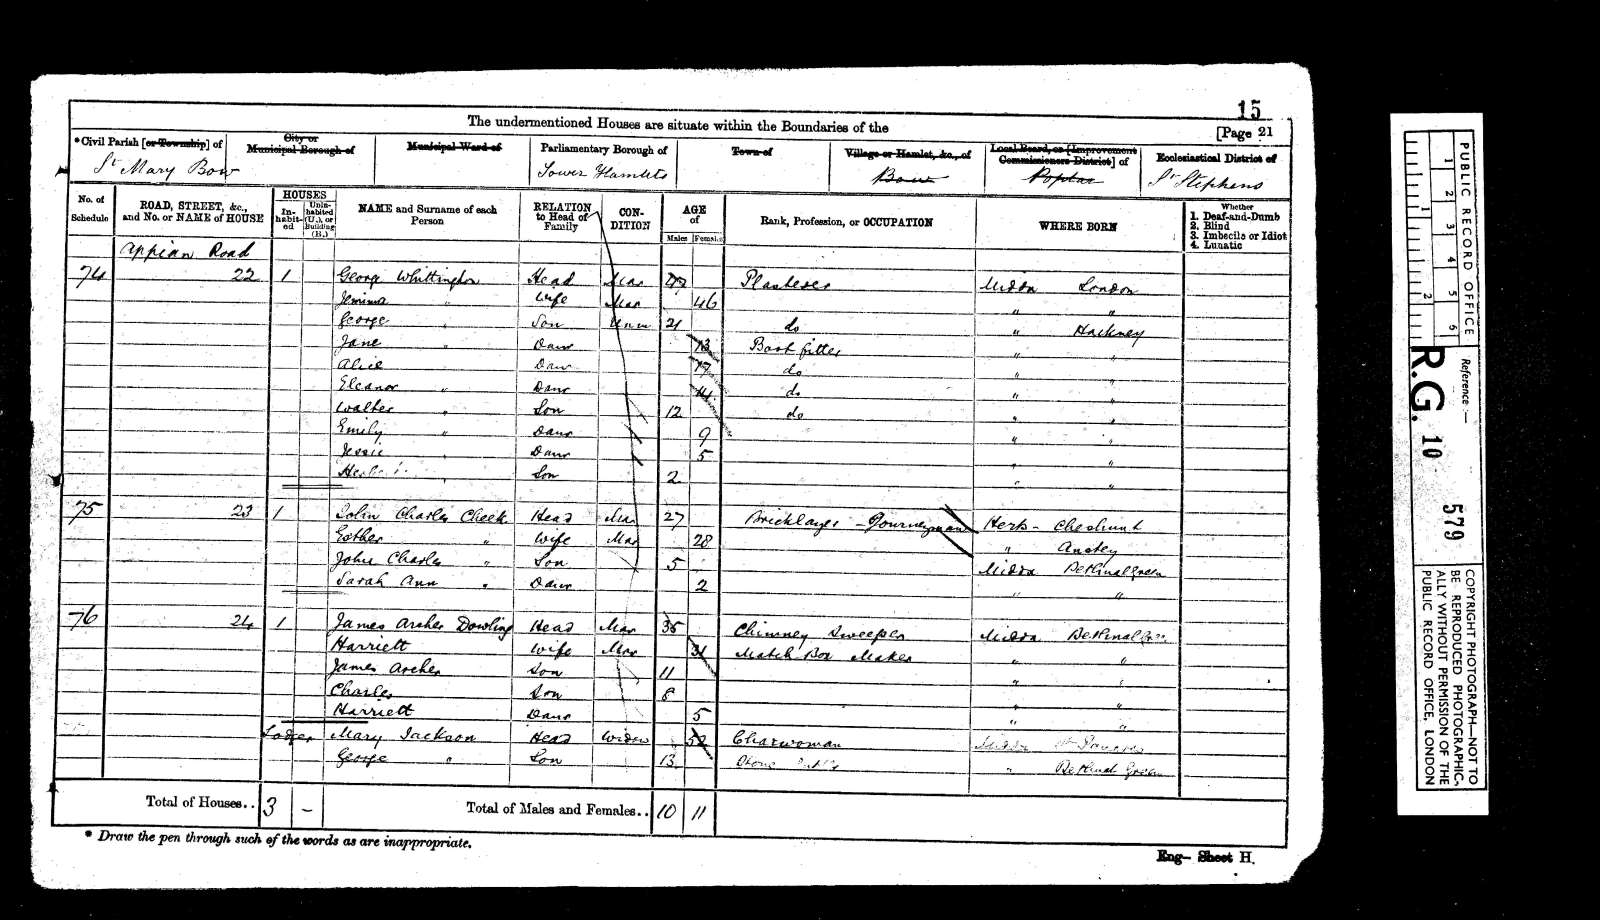 15
The undermentioned Houses are situate within the Boundaries of the [Page 21
*Civil Parish [or Township] of City or Municipal Borough of Municipal Ward of Parliamentary Borough of Town of Village or Hamlet, &c., of Local Board, or [Improvement Commissioners District] of Ecclesiastical District of
St Mary Bow Tower Hamlets Bow Poplar St Stephens
No. of Schedule ROAD, STREET, &c., and No. or NAME of HOUSE HOUSES Inhabited Uninhabited (U.), or Building (B.) NAME and Surname of each Person RELATION to Head of Family CONDITION AGE of Males Females Rank, Profession, or OCCUPATION WHERE BORN Whether 1. Deaf-and-Dumb 2. Blind 3. Imbecile or Idiot 4. Lunatic
Appian Road
74 22 1 George Whittington Head Mar 47 Plasterer Middx London
Jemima " Wife Mar 46 " "
George " Son Unm 21 do " Hackney
Jane " Daur Boot fitter " "
Alice " Daur 17 do " "
Eleanor " Daur 14 do " "
Walter " Son 12 do " "
Emily " Daur 9 " "
Jessie " Daur 5 " "
" Son 2 " "
75 23 1 John Charles Cheek Head Mar 27 Bricklayer - Journeyman Herts - Cheshunt
Esther " Wife Mar 28 " Anstey
John Charles " Son 5 Middx Bethnal Green
Sarah Ann " Daur 2 " "
76 24 1 James Archer Dowling Head Mar 35 Chimney Sweeper Middx Bethnal Green
Harriett Wife Mar 31 Match Box Maker " "
James Archer Son 11 " "
Charles Son 8 " "
Harriett Daur 5 " "
Lodger Mary Jackson Head Widow Charwoman Middx St Pancras
George " Son 13 " Bethnal Green
Total of Houses.. 3 – Total of Males and Females.. 10 11
* Draw the pen through such of the words as are inappropriate.
Eng- Sheet H.
PUBLIC RECORD OFFICE
1 2 3 4 5 6
1 2
Reference :-
R.G. 10 579
COPYRIGHT PHOTOGRAPH—NOT TO
BE REPRODUCED PHOTOGRAPHIC-
ALLY WITHOUT PERMISSION OF THE
PUBLIC RECORD OFFICE, LONDON